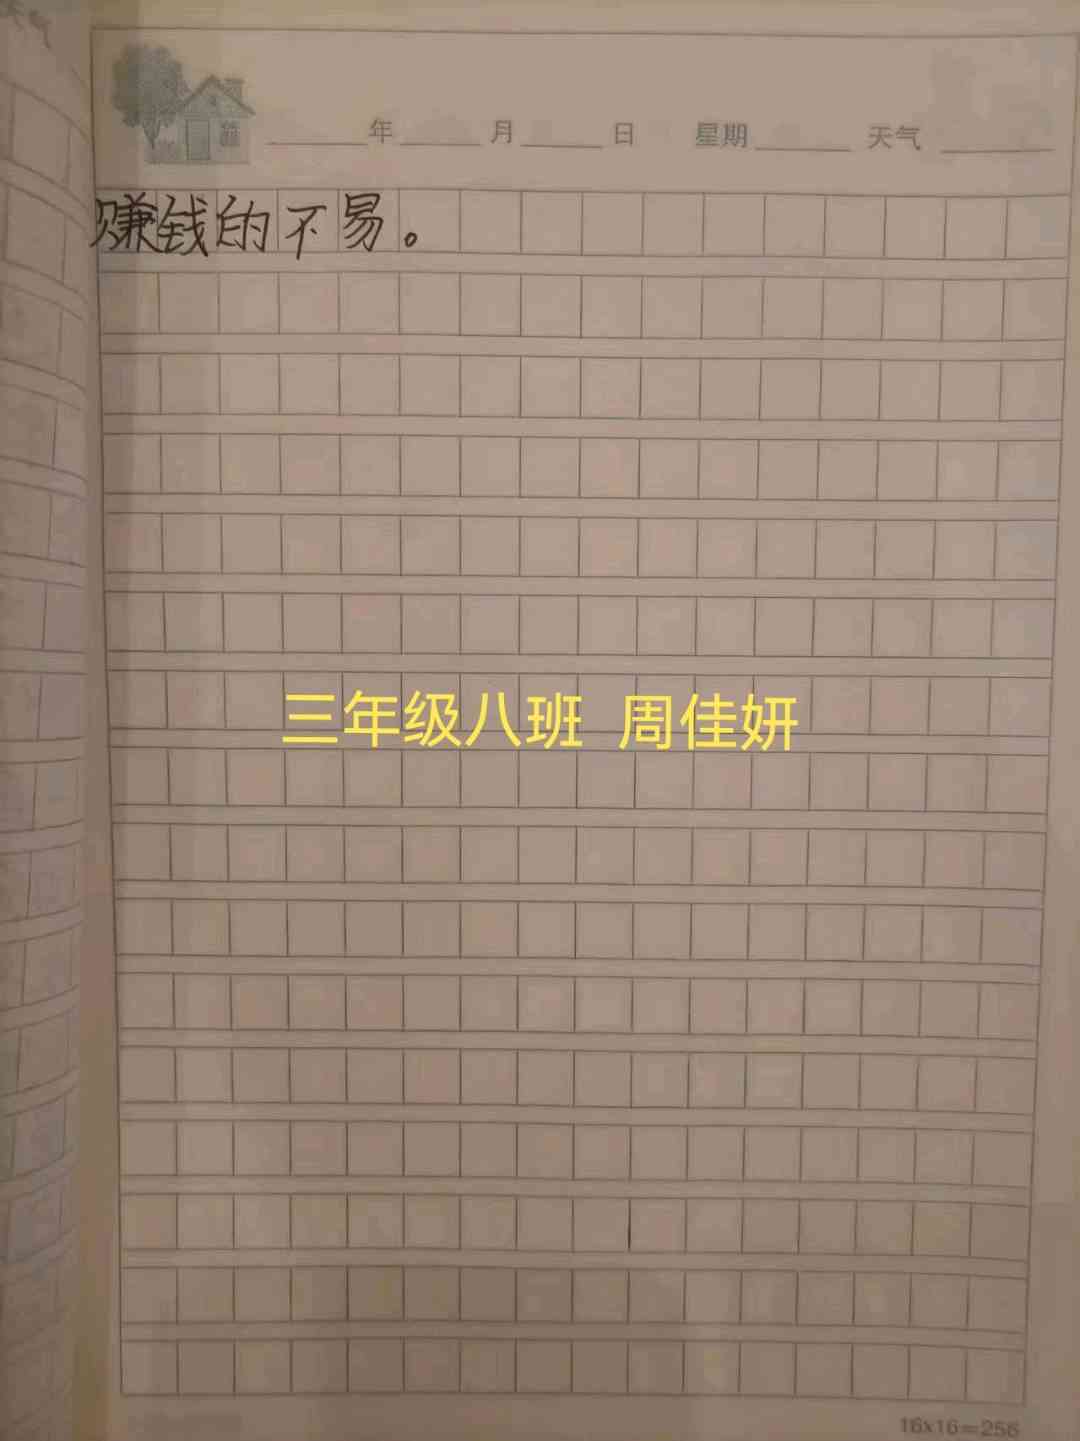 天气
年 月 日 星期 天气
赚钱的不易。
三年级八班 周佳妍
16x16=256